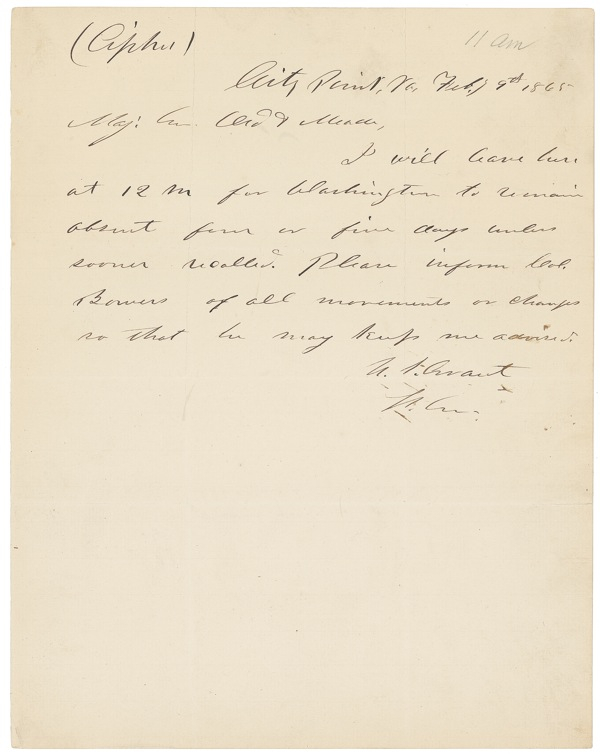 (Cipher)
11 am
City Point, Va, Feb.y 9th 1865
Maj. Gn. Ord & Meade,
I will leave here
at 12 m for Washington to remain
absent four or five days unless
sooner recalled. Please inform Col.
Bowers of all movements or changes
so that he may keep me advised.
U. S. Grant
Lt. Gn.